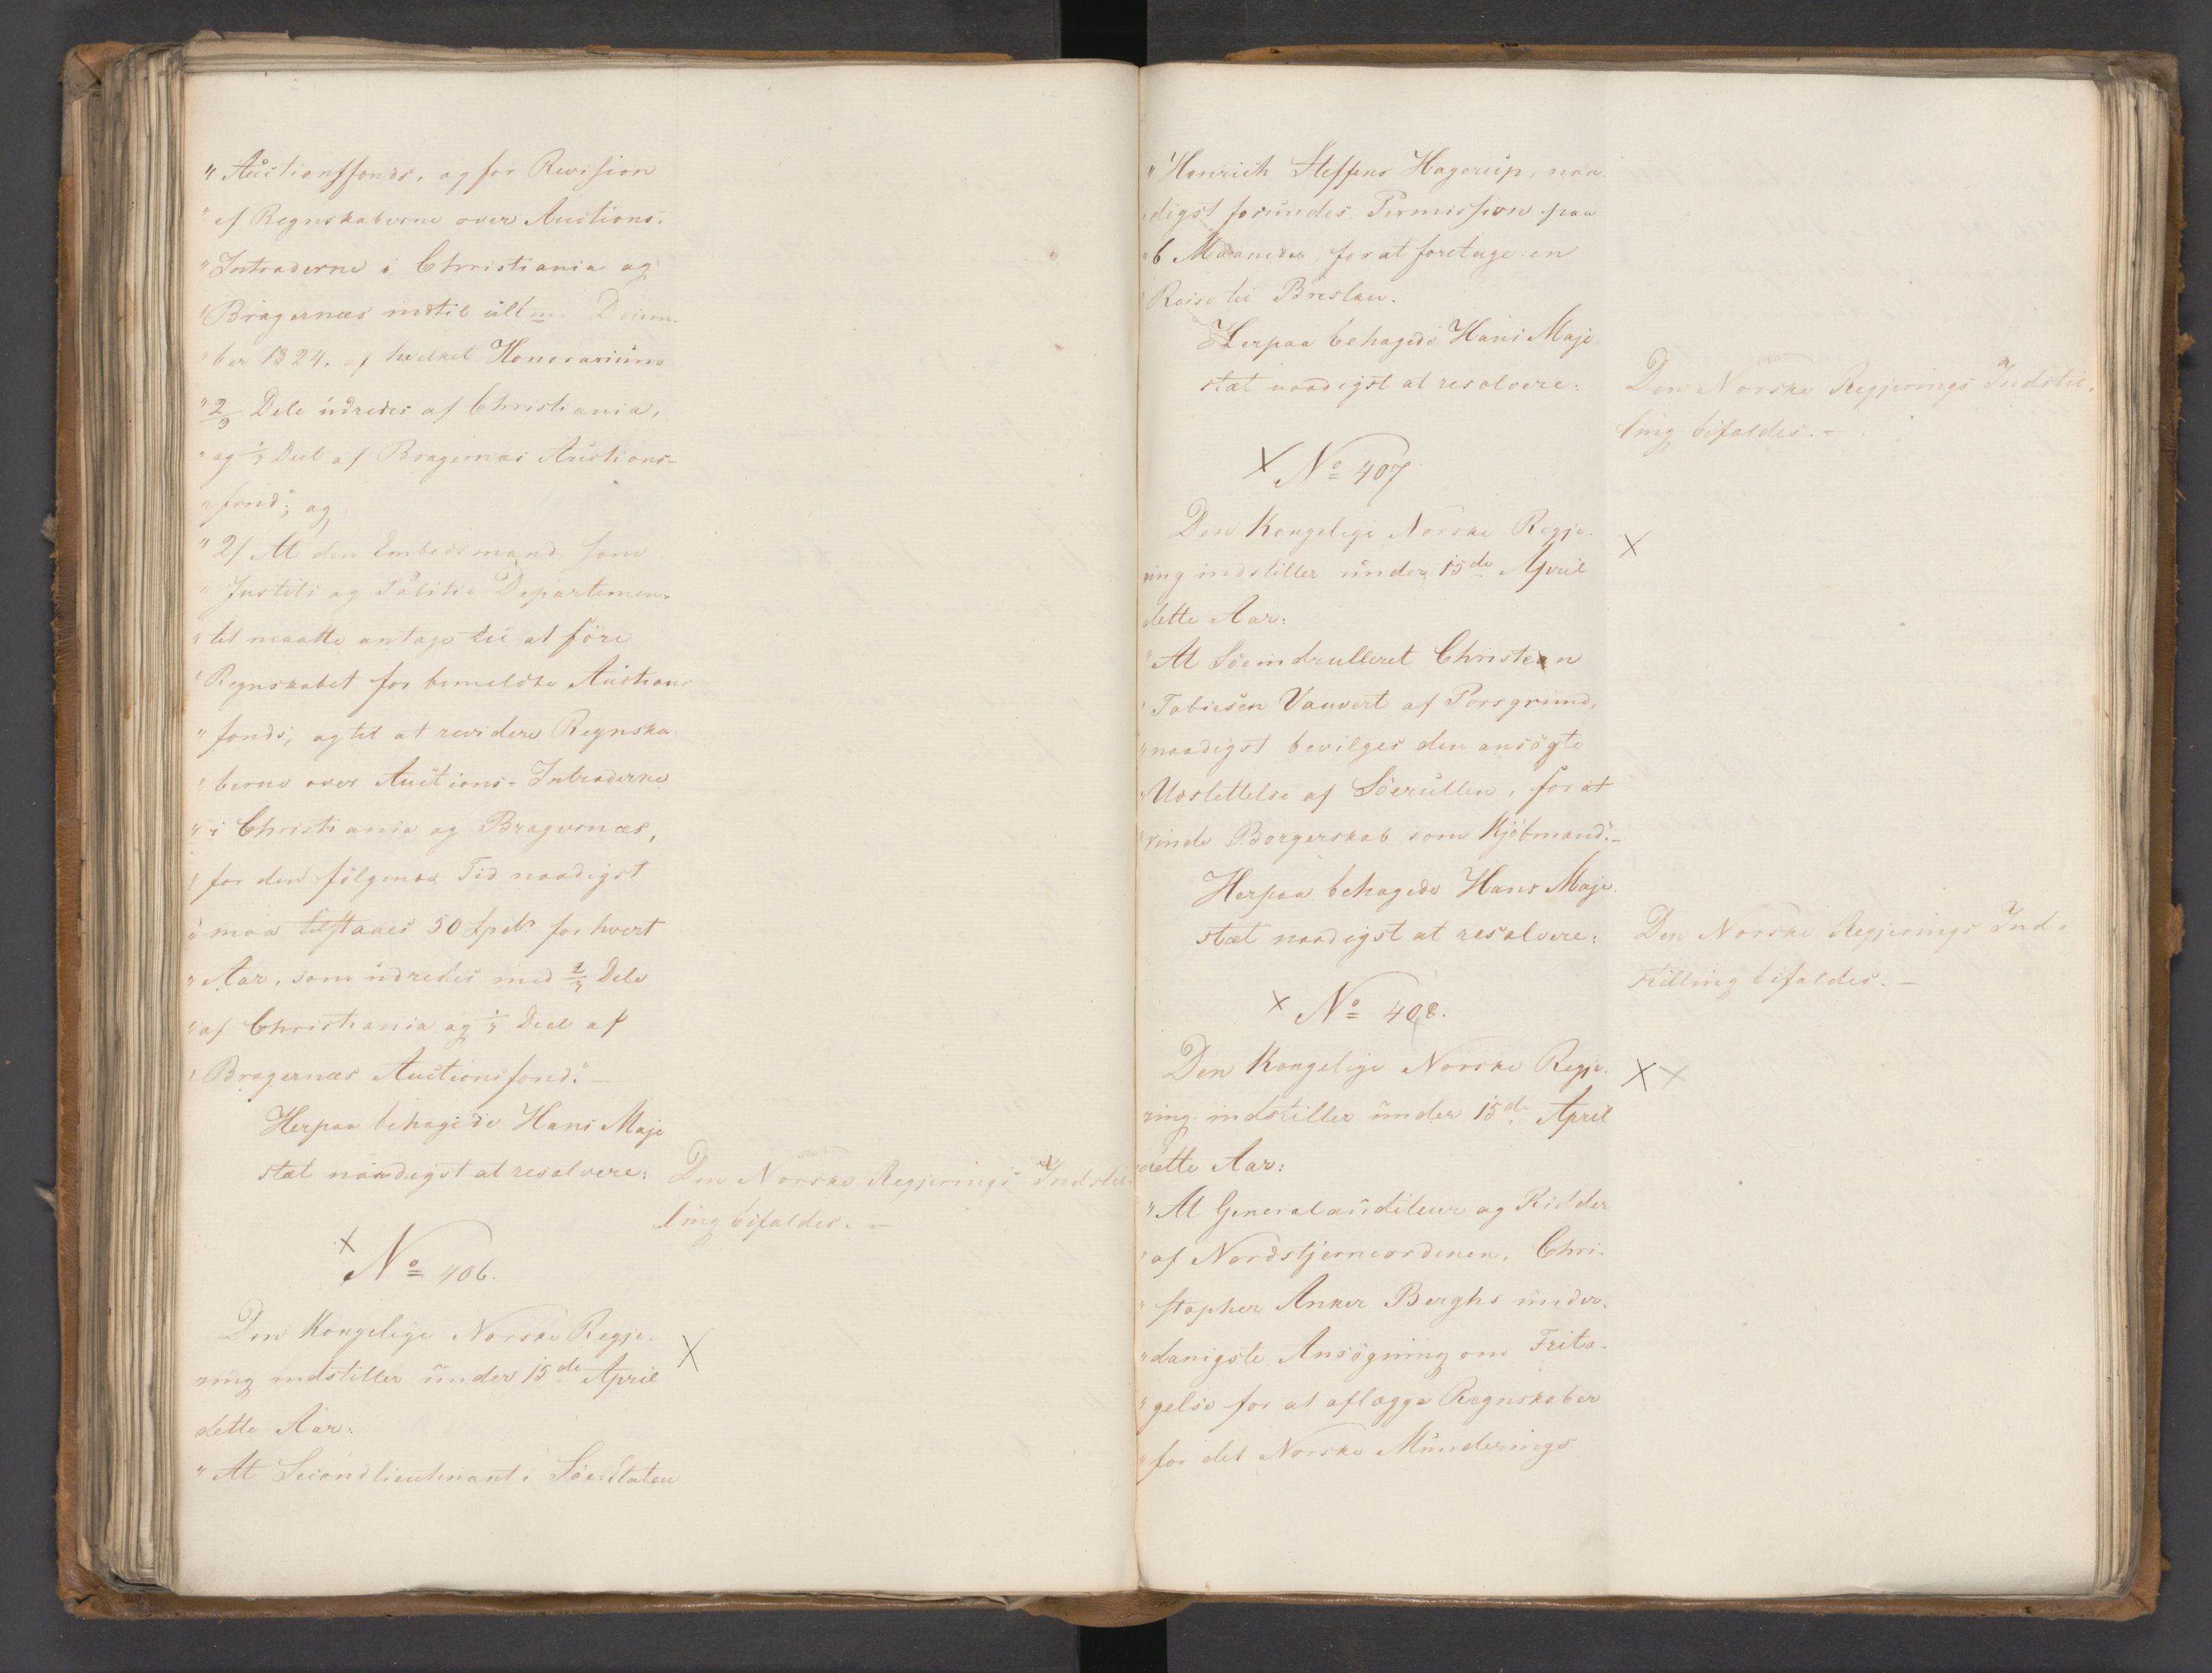 "Auctionsfonds, og for Revision
"af Regnskaberne over Auctions-
"Intraderne i Christiania og
"Bragernæs indtil ultm. Decem-
"ber 1824, af hvilket Honorarium
"2/3 Dele udredes af Christiania,
"og 1/3 Deel af Bragernæs Auctions-
"fond"; og
"2/ At den Embedsmand, som
"Justits og Politie Departemen-
"tet maatte antage til at føre
"Regnskabet for bemeldte Auctions
"fonds, og til at revidere Regnska-
"berne over Auctions-Intraderne
"i Christiania og Bragernæs,
"for den følgende Tid naadigst
"maa tilstaaes 50 Spd. for hvert
"Aar, som udredes med 2/3 Dele
"af Christiania og 1/3 Deel af
"Bragernæs Auctionsfond." –
Herpaa behagede Hans Maje
stæt naadigst at resolvere:
Den Norske Regjerings Indstil-
ling bifaldes. –
X
No 406.
Den Kongelige Norske Regje-
ring indstiller under 15de April
dette Aar:
X
"At Secondlieutenant i Søe-Etaten
"Henrich Steffens Hagerup, naa-
"digst forundes Permission paa
"6 Maaneder, for at foretage en
"Reise til Breslau.
Herpaa behagede Hans Maje-
stæt naadigst at resolvere:
Den Norske Regjerings Indstil-
ling bifaldes. –
X No 407
Den Kongelige Norske Regje-
ring indstiller under 15de April
dette Aar:
X
"At Søeindrulleret Christian
"Tobiesen Vauvert af Porsgrund,
"naadigst bevilges den ansøgte
"Udslettelse af Søerullen, for at
"vinde Borgerskab som Kjøbmand." –
Herpaa behagede Hans Maje-
stæt naadigst at resolvere:
Den Norske Regjerings Ind-
stilling bifaldes. –
X No 408.
Den Kongelige Norske Regje-
ring indstiller under 15de April
dette Aar:
X X
"At Generalauditeur og Ridder
"af Nordstjerneordenen, Chri-
"stopher Anker Berghs under-
"danigste Ansøgning om Frita-
"gelse for at aflægge Regnskaber
"for det Norske Munderings